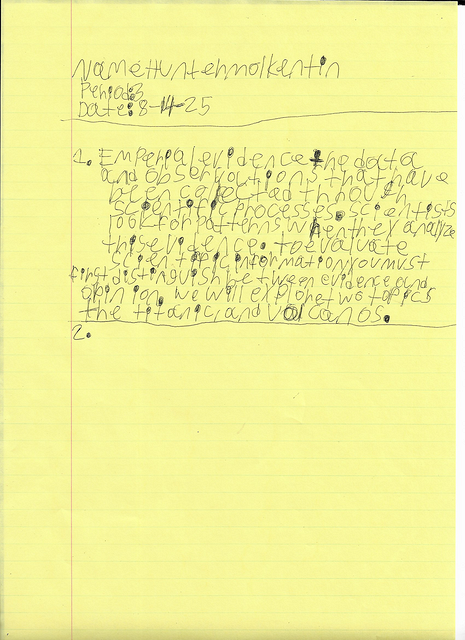 Name: Hunter molkentin
Period: 3
Date: 8-14-25
1. Emperial evidence the data
and observations that have
been collected through
scientific processes. scientists
look for patterns when they analyze
this evidence. to evaluate
scientific information you must
first distinguish between evidence and
opinion. we will explore two topics
the titanic, and volcanos.
2.